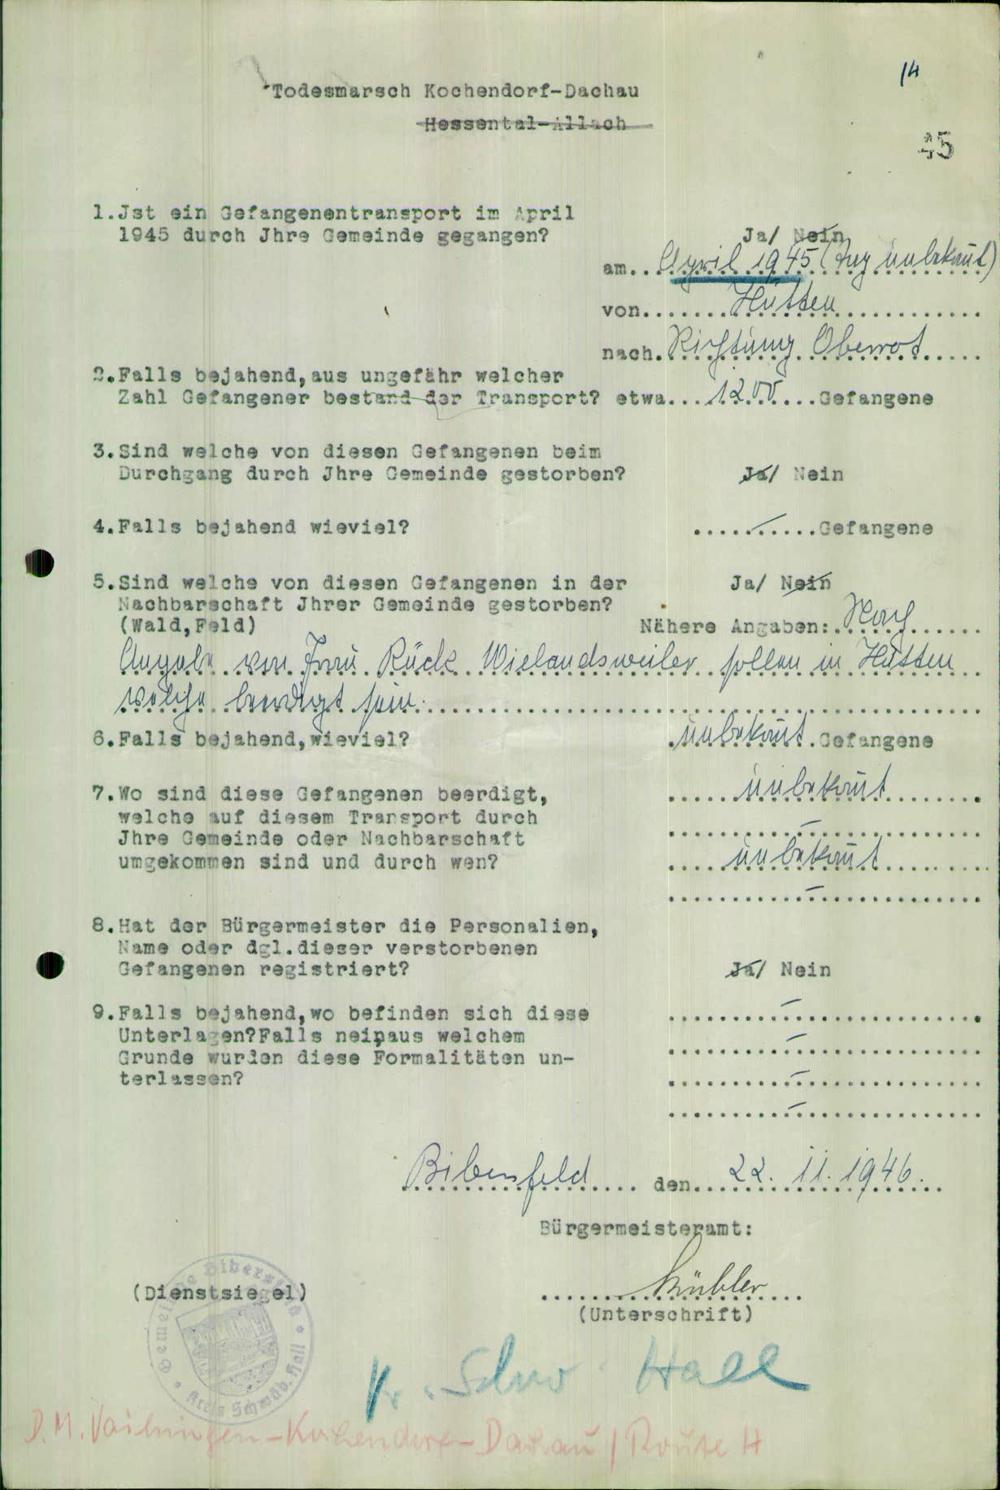 14
Todesmarsch Kochendorf-Dachau
Hessental-Allach
45
1.Jst ein Gefangenentransport im April
1945 durch Jhre Gemeinde gegangen?
Ja/ Nein
am.. April 1945 (Tag unbekannt)
von.......Hütten............
nach.Richtung Oberrot.....
2.Falls bejahend,aus ungefähr welcher
Zahl Gefangener bestand der Transport? etwa...1200....Gefangene
3.Sind welche von diesen Gefangenen beim
Durchgang durch Jhre Gemeinde gestorben? Ja/ Nein
4.Falls bejahend wieviel? .....–.....Gefangene
5.Sind welche von diesen Gefangenen in der Ja/ Nein
Nachbarschaft Jhrer Gemeinde gestorben?
(Wald,Feld) Nähere Angaben:.Nach......
Angabe von Frau Rück Wielandsweiler sollen in Hütten
welche beerdigt sein.
6.Falls bejahend,wieviel? .unbekannt.Gefangene
7.Wo sind diese Gefangenen beerdigt, unbekannt
welche auf diesem Transport durch
Jhre Gemeinde oder Nachbarschaft –
umgekommen sind und durch wen? unbekannt
–
8.Hat der Bürgermeister die Personalien,
Name oder dgl.dieser verstorbenen
Gefangenen registriert? Ja/ Nein
9.Falls bejahend,wo befinden sich diese –
Unterlagen?Falls nein,aus welchem –
Grunde wurden diese Formalitäten un- –
terlassen? –
Bibersfeld.... den...22. 11. 1946.
Bürgermeisteramt:
(Dienstsiegel)
(Unterschrift)
Gemeinde Bibersfeld
Kreis Schwäb. Hall
Kr. Schw. Hall
D.M. Vaihingen-Kochendorf-Dachau / Route H